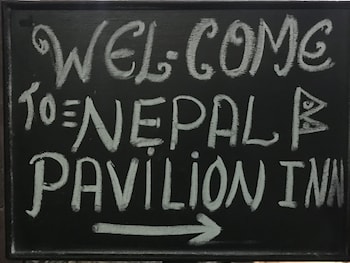 WEL-COME
TO NEPAL
PAVILION INN